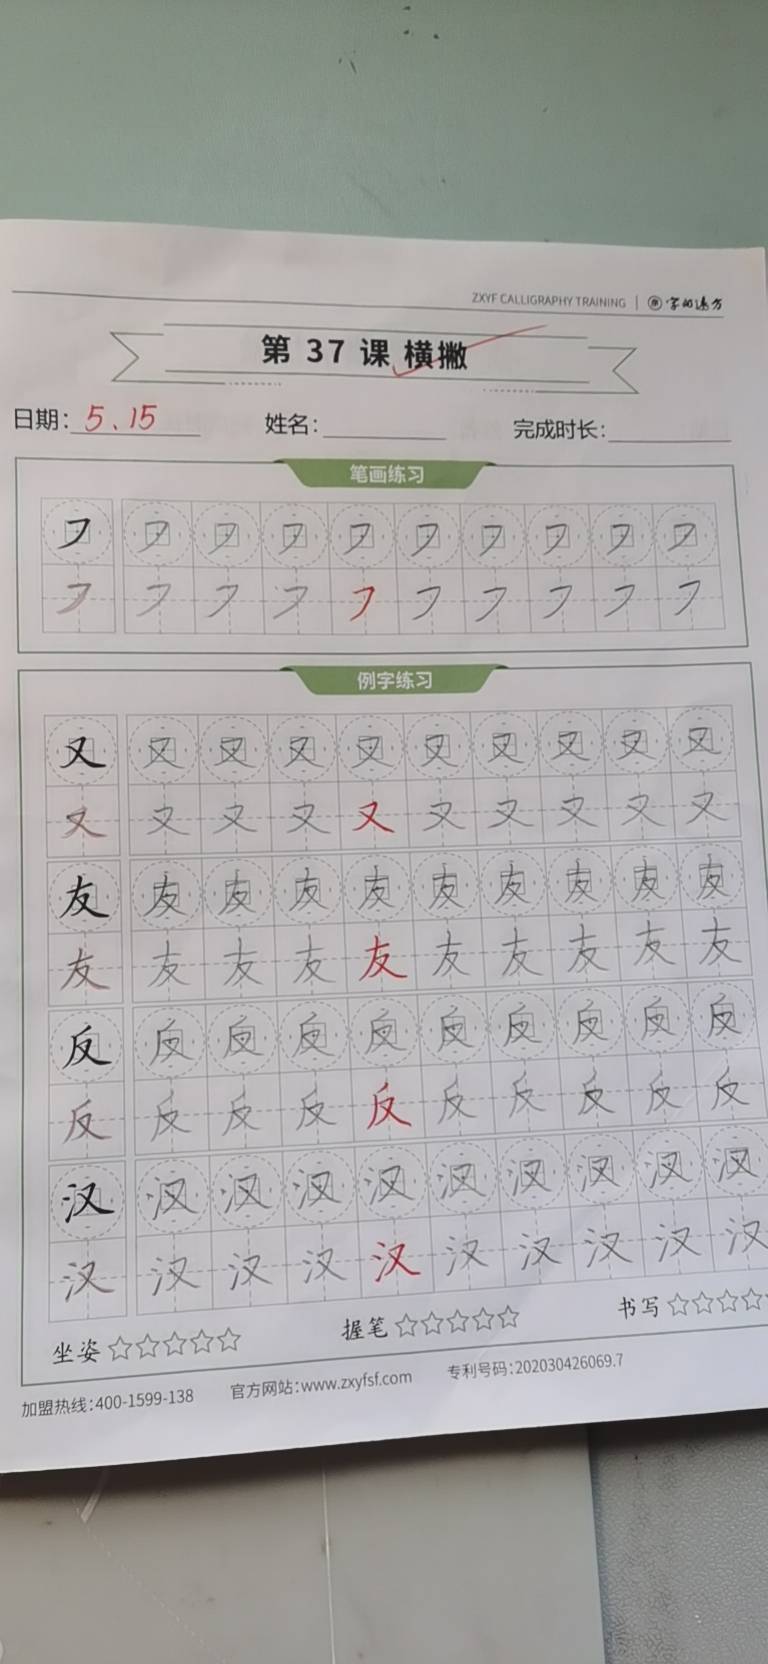 ZXYF CALLIGRAPHY TRAINING | 字如远方
第 37 课 横撇
日期: 5.15 姓名: 完成时长:
笔画练习
㇇ ㇇ ㇇ ㇇ ㇇ ㇇ ㇇ ㇇ ㇇ ㇇
㇇ ㇇ ㇇ ㇇ ㇇ ㇇ ㇇ ㇇ ㇇ ㇇
例字练习
又 又 又 又 又 又 又 又 又 又
又 又 又 又 又 又 又 又 又 又
友 友 友 友 友 友 友 友 友 友
友 友 友 友 友 友 友 友 友 友
反 反 反 反 反 反 反 反 反 反
反 反 反 反 反 反 反 反 反 反
汉 汉 汉 汉 汉 汉 汉 汉 汉 汉
汉 汉 汉 汉 汉 汉 汉 汉 汉 汉
坐姿☆☆☆☆☆ 握笔☆☆☆☆☆ 书写☆☆☆☆
加盟热线:400-1599-138 官方网站:www.zxyfsf.com 专利号码:202030426069.7